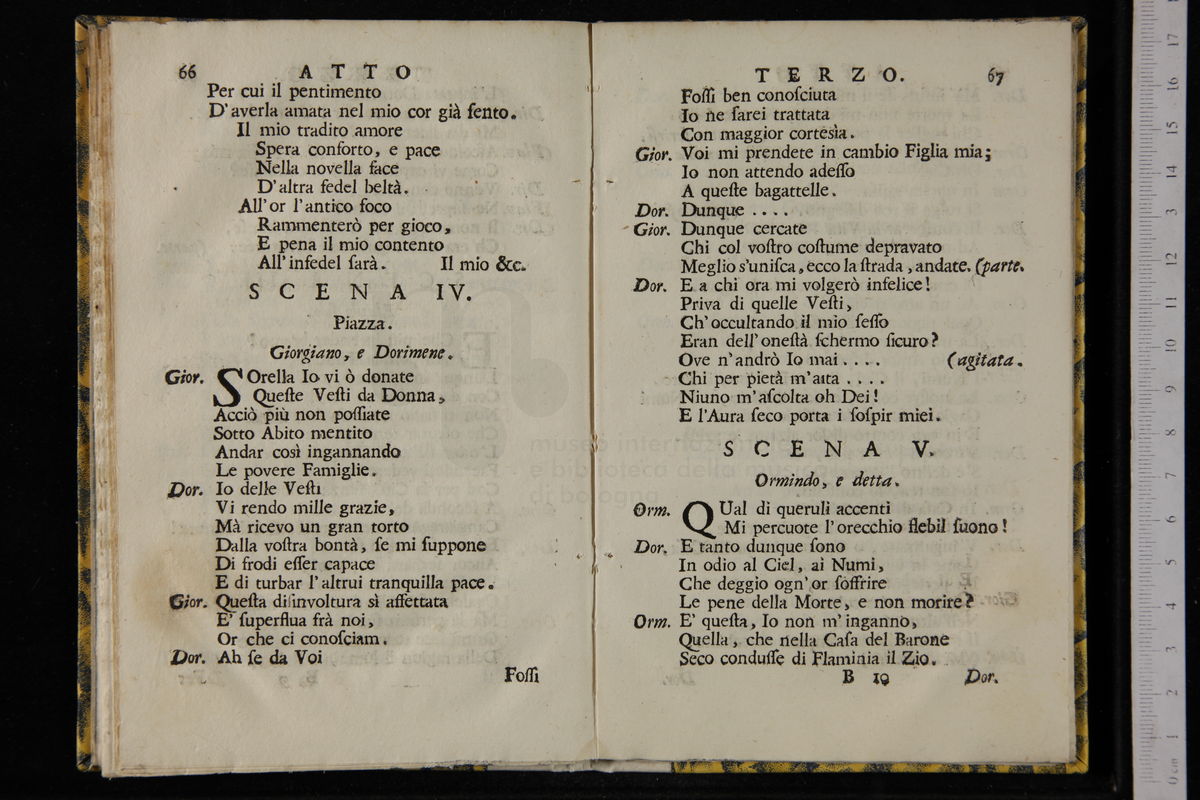 66 ATTO
Per cui il pentimento
D'averla amata nel mio cor già ſento.
Il mio tradito amore
Spera conforto, e pace
Nella novella face
D'altra fedel beltà.
All'or l'antico foco
Rammenterò per gioco,
E pena il mio contento
All'infedel ſarà. Il mio &c.
SCENA IV.
Piazza.
Giorgiano, e Dorimene.
Gior. SOrella Io vi ò donate
Queſte Veſti da Donna,
Acciò più non poſſiate
Sotto Abito mentito
Andar così ingannando
Le povere Famiglie.
Dor. Io delle Veſti
Vi rendo mille grazie,
Mà ricevo un gran torto
Dalla voſtra bontà, ſe mi ſuppone
Di frodi eſſer capace
E di turbar l'altrui tranquilla pace.
Gior. Queſta diſinvoltura sì affettata
E' ſuperflua frà noi,
Or che ci conoſciam.
Dor. Ah ſe da Voi
Foſſi
TERZO. 67
Foſſi ben conoſciuta
Io ne ſarei trattata
Con maggior cortesìa.
Gior. Voi mi prendete in cambio Figlia mia;
Io non attendo adeſſo
A queſte bagattelle.
Dor. Dunque ....
Gior. Dunque cercate
Chi col voſtro coſtume depravato
Meglio s'uniſca, ecco la ſtrada, andate. (parte.
Dor. E a chi ora mi volgerò infelice!
Priva di quelle Veſti,
Ch'occultando il mio ſeſſo
Eran dell'oneſtà ſchermo ſicuro?
Ove n'andrò Io mai .... (agitata.
Chi per pietà m'aita ....
Niuno m'aſcolta oh Dei!
E l'Aura ſeco porta i ſoſpir miei.
SCENA V.
Ormindo, e detta.
Orm. QUal di queruli accenti
Mi percuote l'orecchio flebil ſuono!
Dor. E tanto dunque ſono
In odio al Ciel, ai Numi,
Che deggio ogn'or ſoffrire
Le pene della Morte, e non morire?
Orm. E' queſta, Io non m'inganno,
Quella, che nella Caſa del Barone
Seco conduſſe di Flaminia il Zio.
B 10 Dor.